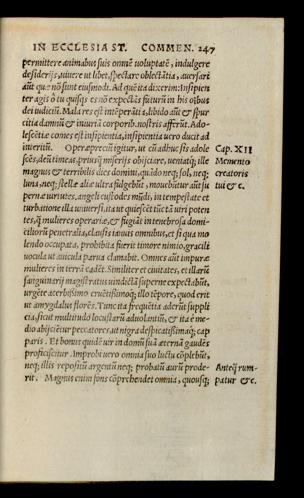 IN ECCLESIAST. COMMEN. 247
permittere animabus suis omnē uoluptatē, indulgere
desiderijs, uiuere ut libet, spectare oblectātia, auersari
aūt quæ nō sunt eiusmodi. Ad quē ita dixerim: Insipien
ter agis ô tu quisq́s es nō expectās futurū in his oībus
dei iudiciū. Mala res est intēperātia, libido aūt & spur
citia damnū & iniuriā corporib. nostris afferūt. Ado-
lescētiæ comes est insipientia, insipientia uero ducit ad
interitū. Operæpreciū igitur, ut cū adhuc sīs adole
scēs, deū timeas, priusq̄ miserijs obijciare, ueniatq́; ille
magnus & terribilis dies domini, quādo neq; sol, neq;
luna, neq; stellæ aliæ ultra fulgebūt, mouebūtur aūt su
pernæ uirtutes, angeli custodes mūdi, in tempestate et
turbatione illa uniuersi, ita ut quiescāt tūc tā uiri poten
tes, q̄ mulieres operariæ, & fugiāt in tenebrosa domi-
ciliorū penetralia, clausis ianuis omnibus, et si qua mo
lendo occupata, prohibita fuerit timore nimio, gracili
uocula ut auicula parua clamabit. Omnes aūt impuræ
mulieres in terrā cadēt. Similiter et ciuitates, et illarū
sanguinarij magistratus uindictā superne expectabūt,
urgēte acerbissimo cruētissimoq́; illo tēpore, quod erit
ut amygdalus florēs. Tunc ita frequētia aderūt suppli
cia, sicut multitudo locustarū aduolantiū, & ita è me-
dio abijciētur peccatores, ut nigra despicatissimaq́; cap
paris. Et bonus quidē uir in domū suā æternā gaudēs
proficiscitur. Improbi uero omnia suo luctu cōplebūt,
neq; illis repositū argentū neq; probatū aurū prode-
rit. Magnus enim fons cōprehendet omnia, quousq;
Cap. XII
Memento
creatoris
tui & c.
Anteq̄ rum-
patur & c.